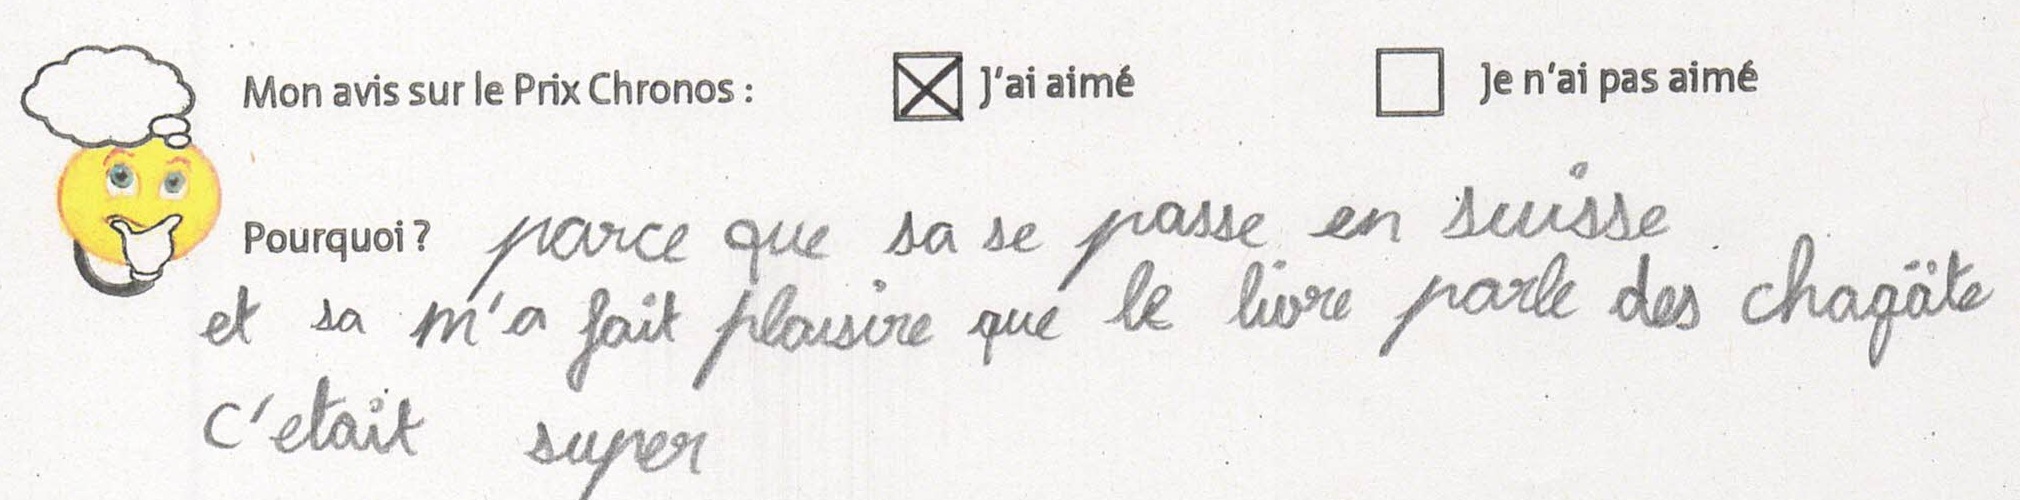 Mon avis sur le Prix Chronos : J'ai aimé Je n'ai pas aimé
Pourquoi ? parce que sa se passe en suisse
et sa m'a fait plaisire que le livre parle des chagäte
c'etait super